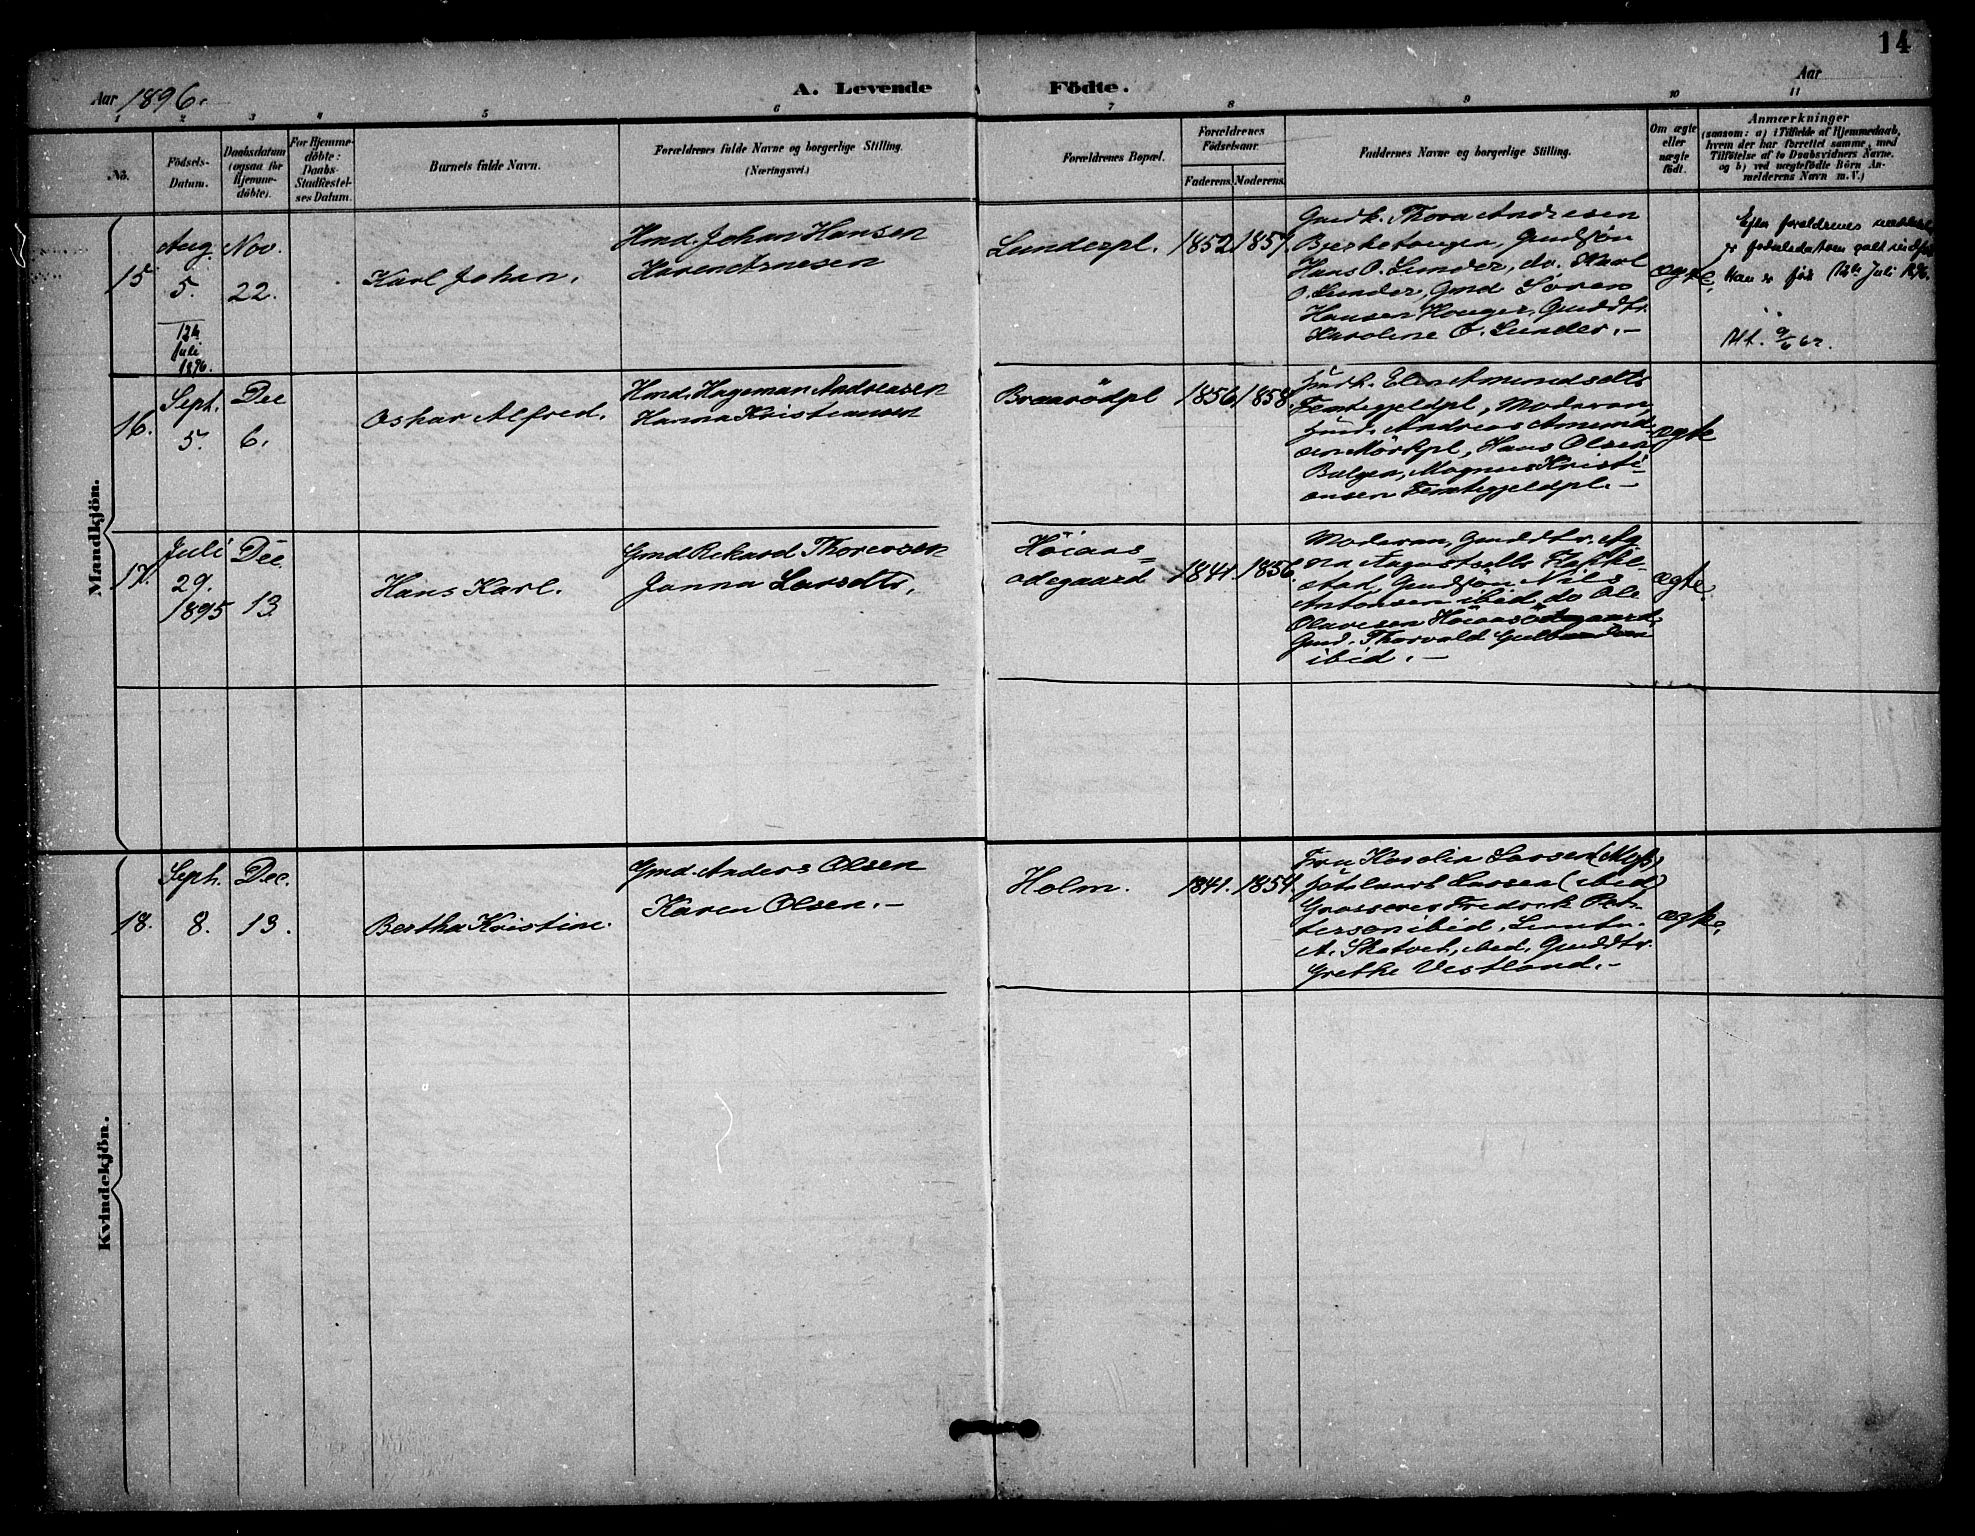 14
Aar 1896. A. Levende Födte. Aar
1 2 3 4 5 6 7 8 9 10 11
No.
Födsels-
Datum.
Daabsdatum
(ogsaa for
Hjemme-
döbte).
For Hjemme-
döbte:
Daabs-
Stadfæstel-
ses Datum.
Barnets fulde Navn.
Forældrenes fulde Navne og borgerlige Stilling.
(Næringsvei.)
Forældrenes Bopæl.
Forældrenes
Födselsaar.
Faderens. Moderens.
Faddernes Navne og borgerlige Stilling.
Om ægte
eller
uægte
födt.
Anmærkninger
(saasom: a) i Tilfælde af Hjemmedaab,
hvem der har forrettet samme, med
Tilföielse af to Daabsvidners Navne,
og b) ved uægtefödte Börn An-
melderens Navn m. V.)
Mandkjön.
15
Aug
5.
12te
Juli
1896.
Nov.
22.
Karl Johan.
Hmd. Johan Hansen
Karen Arnesen
Lunderpl.
1852 1857
Gmdk. Thora Andresen
Bjerketangen, Gmdsön
Hans O. Lunder, do. Karl
O. Lunder, Gmd Sören
Hansen Houger, Gmddtr.
Karoline O. Lunder. –
ægte.
Efter foreldrenes
er fødselsdatoen galt
Han er født 12te Juli 1896.
Sept.
5.
16.
Dec
6.
Oskar Alfred.
Hmd. Hageman Andreasen
Hanna Kristiansen
Braarödpl
1856 1858
Elen Amundsdtr
Femtegjeldpl, Moderen,
Andreas Amund-
sen Mörkpl, Hans Olsen
Bulgen, Magnus Kristi-
ansen Femtegjeldpl. –
ægte
17.
Juli
29.
1895
Dec
13.
Hans Karl.
Gmd Rikard Thoresen
Janna Larsdtr.
Höiaas-
ödegaard
1841 1856.
Moderen, Gmddtr. Ag-
nes Augustsdtr
stad, Gmdsön Nils
Antonsen ibid, do Ole
Olavesen Höiaasödegaard,
Gmd. Thorvald Gulbrandsen
ibid. –
ægte.
Kvindekjön.
18.
Sept.
8.
Dec.
13.
Bertha Kristine.
Gmd. Anders Olsen
Karen Olsen. –
Holm.
1841. 1854.
Fru Karolia Larsen
Larsen (ibid)
Grosserer Fredrik Pet-
tersen ibid,
A. Skatvet, ibid, Gmddtr.
Grethe Vestland. –
ægte.